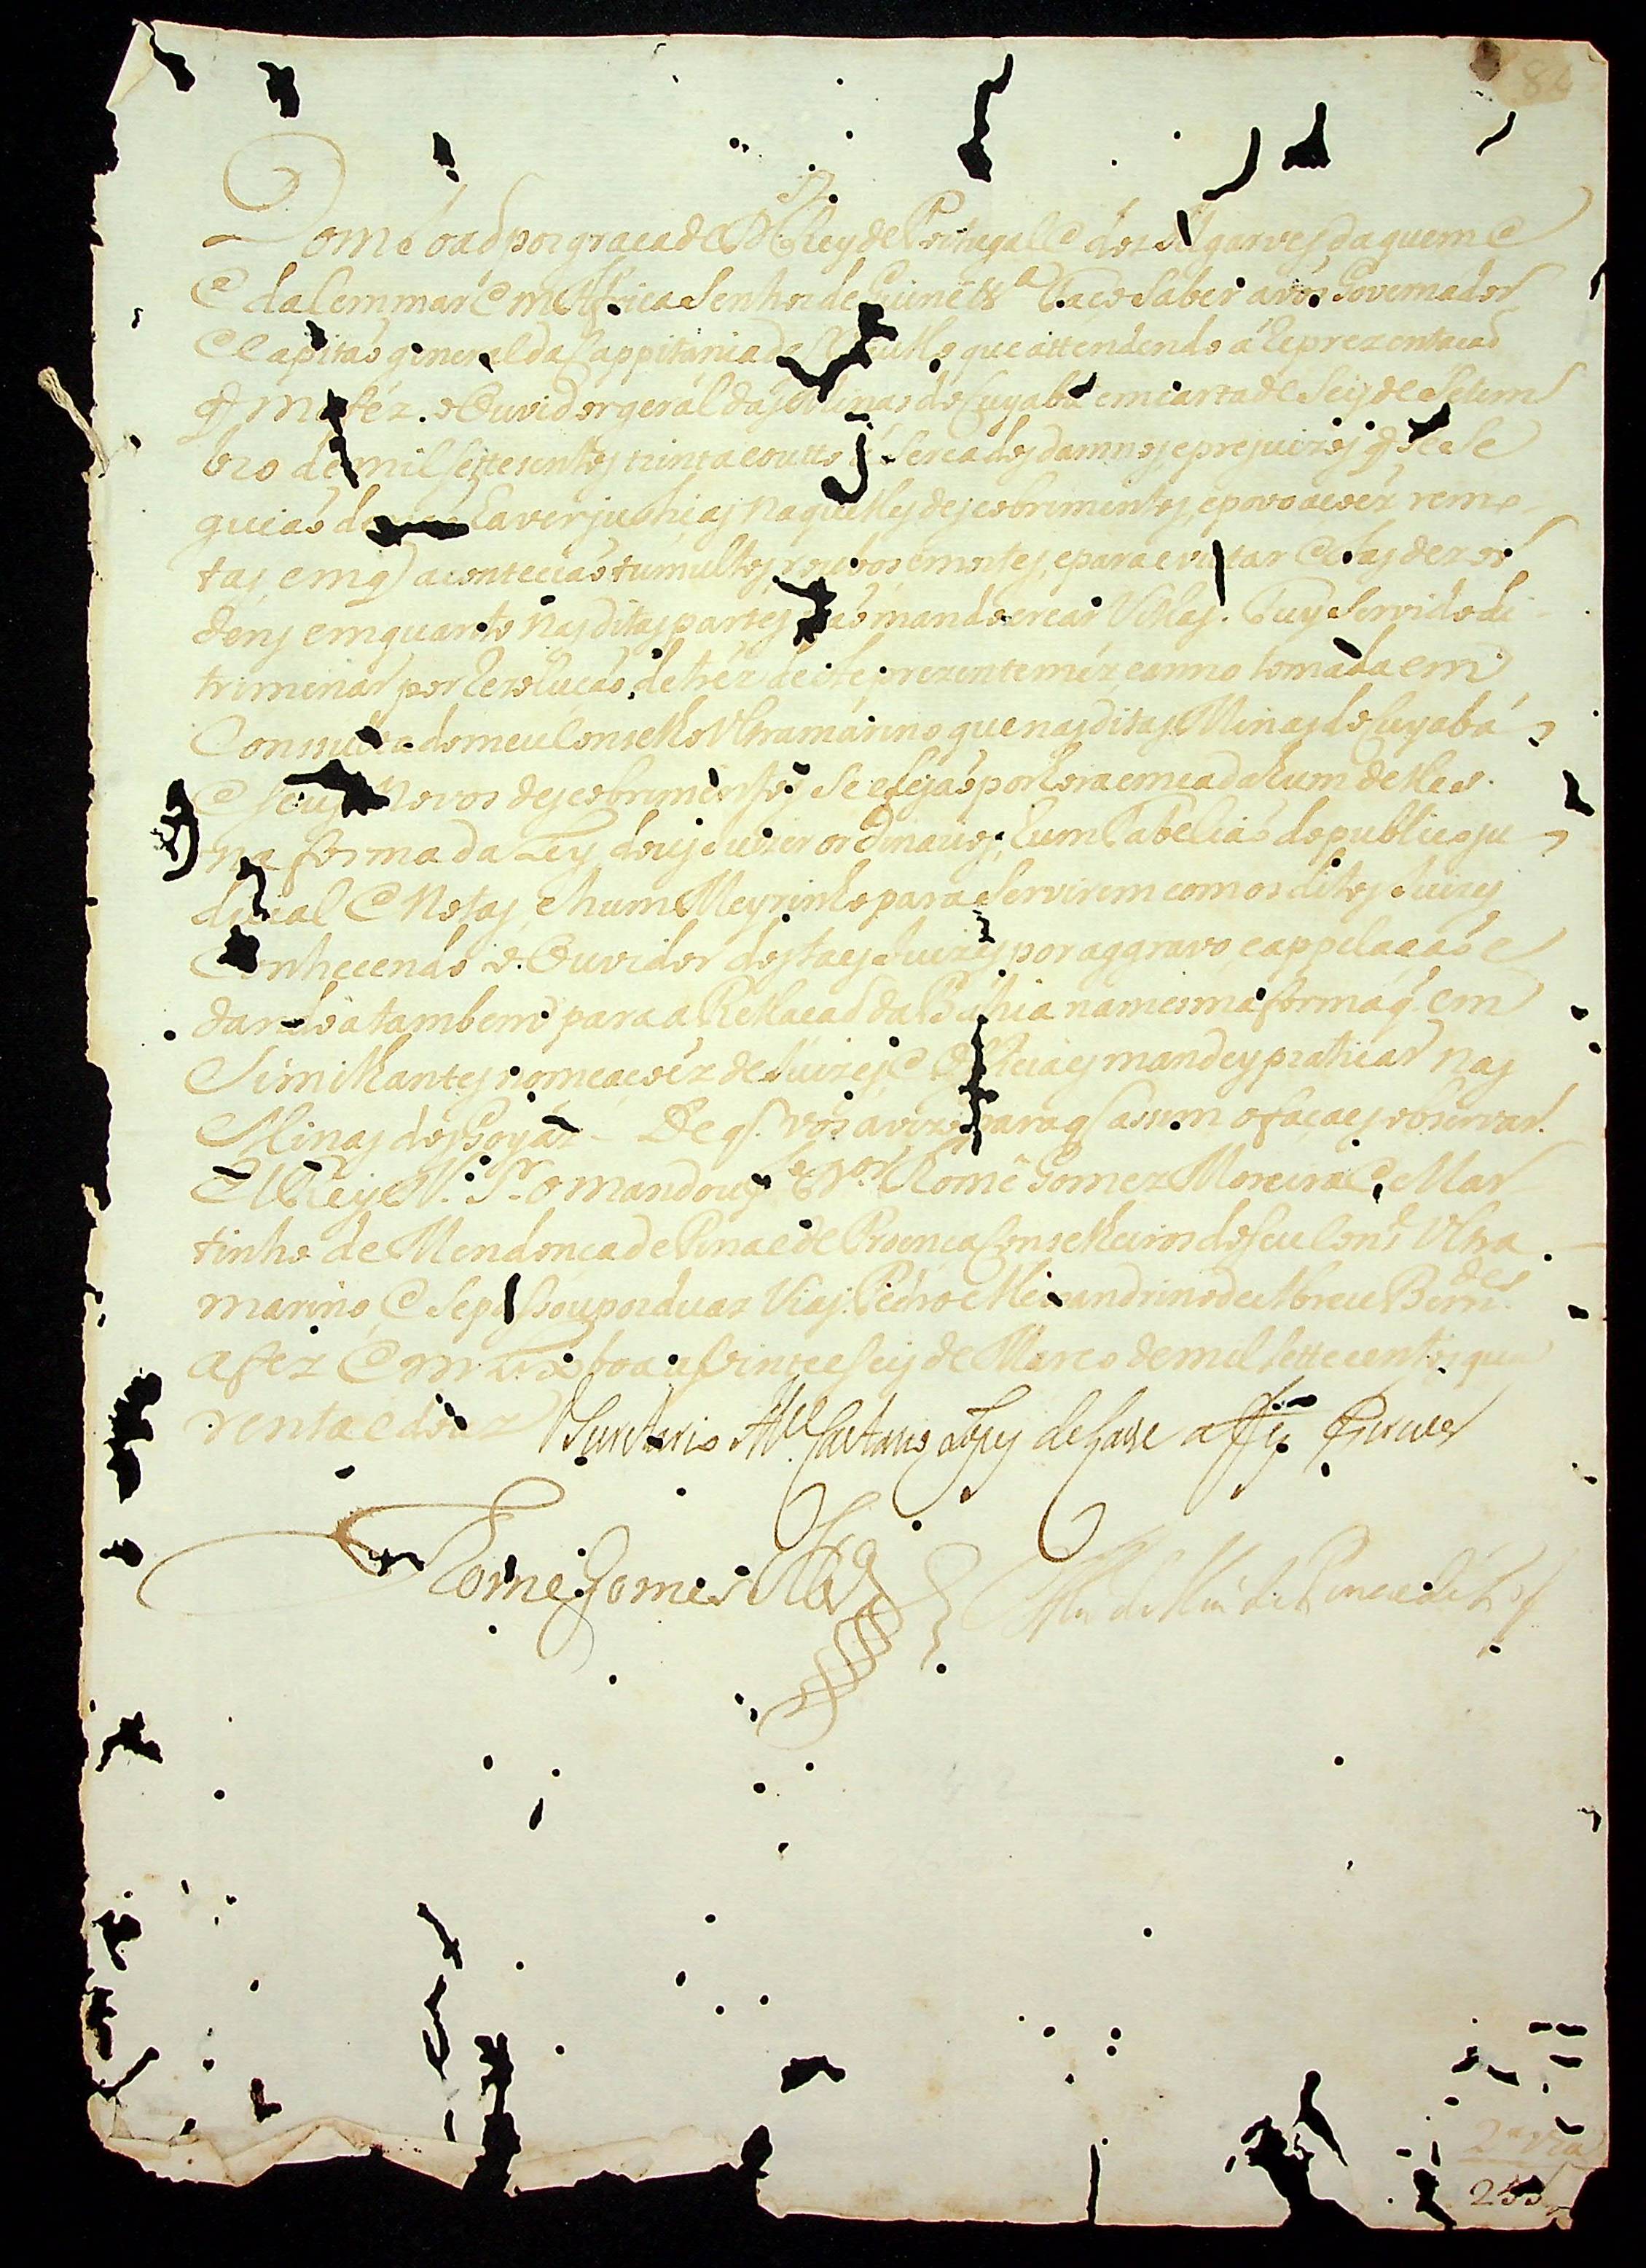 84
Dom Ioaõ por graça de Ds. Rey de Portugal e dos Algarves daquem e
e dalem mar em Africa Senhor de Guiné &ª. Faço saber avós Governador
e Capitaõ general da Cappitania de que attendendo á Reprezentacaõ
q̃ me fés o Ouvidor geral das Minas do Cuyabá em carta de seis de Setem
bro de mil settecentos trinta e outto á serca dos damnos, e prejuizos q̃ se se
guiaõ de haver justiças naquelles descobrimentos, e povoacoéz remo
tas, em q̃ aconteciaõ tumultos, roubos e mortes, e para evittar estas dezor
dens emquanto nas ditas partes naõ mando crear Villas. Fuy servido di
triminar por Rezoluçaõ de tréz deste prezente méz, e anno tomada em
Consulta do meu Conselho Ultramarino que nas ditas Minas do Cuyabá
e seus novos descobrimentos se elejaõ por hora em cada hum delles
na forma da Ley dous Juizes ordinarios, hum Tabeliaõ do publico ju
dicial e Notas, e hum Meyrinho para servirem com os ditos Juizes
Conhecendo o Ouvidor destes Juizes por aggravo e appelaçaõ e
dandoa tambem para a Rellacaõ da Bahia na mesma forma q̃ em
Similhantes nomeacoéz de Juizes e Officiaes mandey praticar nas
Minas dos Goyáz. De q̃ vos avizo para q̃ assim o façaes observar.
El Rey N. Sr. o mandou por Thomé Gomez Moreira e Mar
tinho de Mendonca de Pina e de Proença Conselheiros do seu Cons.º Ultra
marino, e se passou por duas vias. Pedro Alexandrino de Abreu Bern.des
a fez em Lixboa a vinte e seis de Marco de mil settecentos qua
renta e dous
O Secretario M.el Caetano Lopes de Lavre a fes escrever
Tome Gomes Mor.ª
2ª via